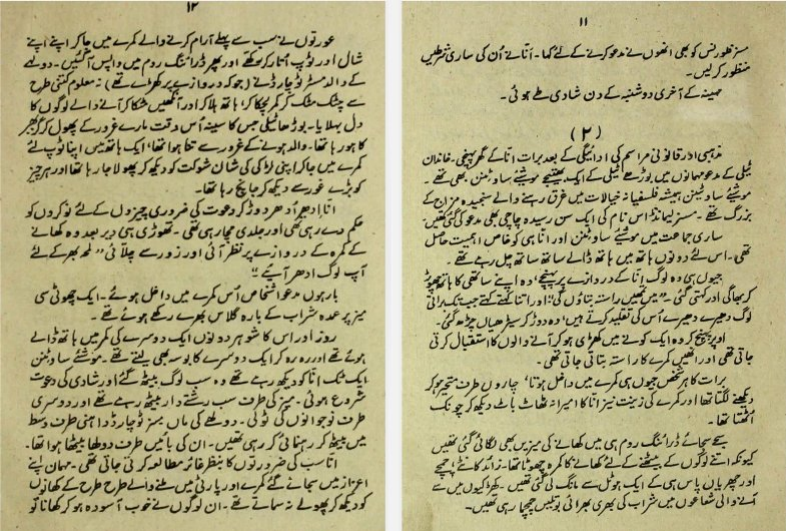 ۱۱
مسز فلورنس کو بھی انھوں نے مدعو کرنے کے لئے کہا۔ انّا نے اُن کی ساری شرطیں
منظور کر لیں۔
مہینہ کے آخری دو شنبہ کے دن شادی طے ہوئی۔
(۲)
مذہبی اور قانونی مراسم کی ادائیگی کے بعد برات انّا کے گھر پہنچی۔ خاندان
ٹیلی کے مدعو مہمانوں میں بوڑھے ٹیلی کے ایک بھتیجے موشئے ساوٹیمن بھی تھے۔
موشئے ساوٹیمن ہمیشہ فلسفیانہ خیالات میں غرق رہنے والے سنجیدہ مزاج کے
بزرگ تھے۔ مسز لیمانڈا اس نام کی ایک سن رسیدہ چاچی بھی مدعو کی گئی تھیں۔
ساری جماعت میں موشئے ساوٹیمن اور انّا ہی کو خاص اہمیت حاصل
تھی۔ اس لئے دونوں ہاتھ میں ہاتھ ڈالے ساتھ ساتھ چل رہے تھے۔
جیوں ہی وہ لوگ انّا کے دروازے پر پہنچے، وہ اپنے ساتھی کا ہاتھ چھوڑ
کر بھاگی اور کہتی گئی۔ "میں تمھیں راستہ بتاؤں گی" اور اتنا کہتے کہتے جب تک براتی
لوگ دھیرے دھیرے اُس کی تقلید کرتے ہیں، وہ دوڑ کر سیڑھیاں چڑھ گئی۔
اوپر پہنچ کر وہ ایک کونے میں کھڑی ہو کر آنے والوں کا استقبال کرتی
جاتی تھی اور انھیں کمرے کا راستہ بتاتی جاتی تھی۔
برات کا ہر شخص جیوں ہی کمرے میں داخل ہوتا، چاروں طرف متحیر ہو کر
دیکھنے لگتا تھا اور کمرے کی زینت نیز انّا کا امیرانہ ٹھاٹ باٹ دیکھ کر چونک
اُٹھتا تھا۔
سجے سجائے ڈرائنگ روم ہی میں کھانے کی میزیں بھی لگائی گئی تھیں
کیونکہ اتنے لوگوں کے بیٹھنے کے لئے کھانے کا کمرہ چھوٹا تھا۔ زائد کانٹے، چمچے
اور چھریاں پاس ہی کے ایک ہوٹل سے مانگ لی گئی تھیں۔ کھڑکیوں میں سے
آنے والی شعاعوں میں شراب کی بھری بھرائی بوتلیں چمچما رہی تھیں۔
۱۲
عورتوں نے سب سے پہلے آرام کرنے والے کمرے میں جا کر اپنے اپنے
شال اور ٹوپ اُتار کر رکھے اور پھر ڈرائنگ روم میں واپس آ گئیں۔ دولہے
کے والد مسٹر ٹوچارڈ نے (جو کہ دروازے پر کھڑے تھے) نہ معلوم کتنی طرح
سے چٹک مٹک کر کمر لچکا کر، ہاتھ ہلا کر اور آنکھیں مٹکا کر آنے والے لوگوں کا
دل بہلایا۔ بوڑھا ٹیلی جس کا سینہ اُس وقت مارے غرور کے پھول کر گز بھر
کا ہو رہا تھا۔ والد ہونے کے غرور سے تنا ہوا تھا، ایک ہاتھ میں اپنا ٹوپ لئے
کمرے میں جا کر اپنی لڑکی کی شان شوکت کو دیکھ کر پھولا جا رہا تھا اور ہر چیز
کو بڑے غور سے دیکھ کر جانچ رہا تھا۔
انّا اِدھر اُدھر دوڑ کر دعوت کی ضروری چیزوں کے لئے نوکروں کو
حکم دے رہی تھی اور جلدی مچا رہی تھی۔ تھوڑی ہی دیر بعد وہ کھانے
کے کمرہ کے دروازے پر نظر آئی اور زور سے چلائی "لمحہ بھر کے لئے
آپ لوگ ادھر آئیے"
بارہوں مدعو اشخاص اُس کمرے میں داخل ہوئے۔ ایک چھوٹی سی
میز پر عمدہ شراب کے بارہ گلاس بھرے رکھے ہوئے تھے۔
روز اور اس کا شوہر دونوں ایک دوسرے کی کمر میں ہاتھ ڈالے
ہوئے تھے اور رہ رہ کر ایک دوسرے کا بوسہ بھی لیتے تھے۔ موشئے ساوٹیمن
ایک ٹک انّا کو دیکھ رہے تھے وہ سب لوگ بیٹھ گئے اور شادی کی دعوت
شروع ہوئی۔ میز کی طرف سب رشتے دار بیٹھ رہے تھے اور دوسری
طرف نوجوانوں کی ٹولی۔ دولھے کی ماں مسز ٹوچارڈ داہنی طرف وسط
میں بیٹھ کر رہنمائی کر رہی تھیں۔ ان کی بائیں طرف دولھا بیٹھا ہوا تھا۔
انّا سب کی ضرورتوں کا بنظر غائر مطالعہ کرتی جاتی تھی۔ مہمان اپنے
اعزاز میں سجائے گئے کمرے اور پارٹی میں ملنے والے طرح طرح کے کھانوں
کو دیکھ کر پھولے نہ سماتے تھے۔ ان لوگوں نے خوب آسودہ ہو کر کھانا تو